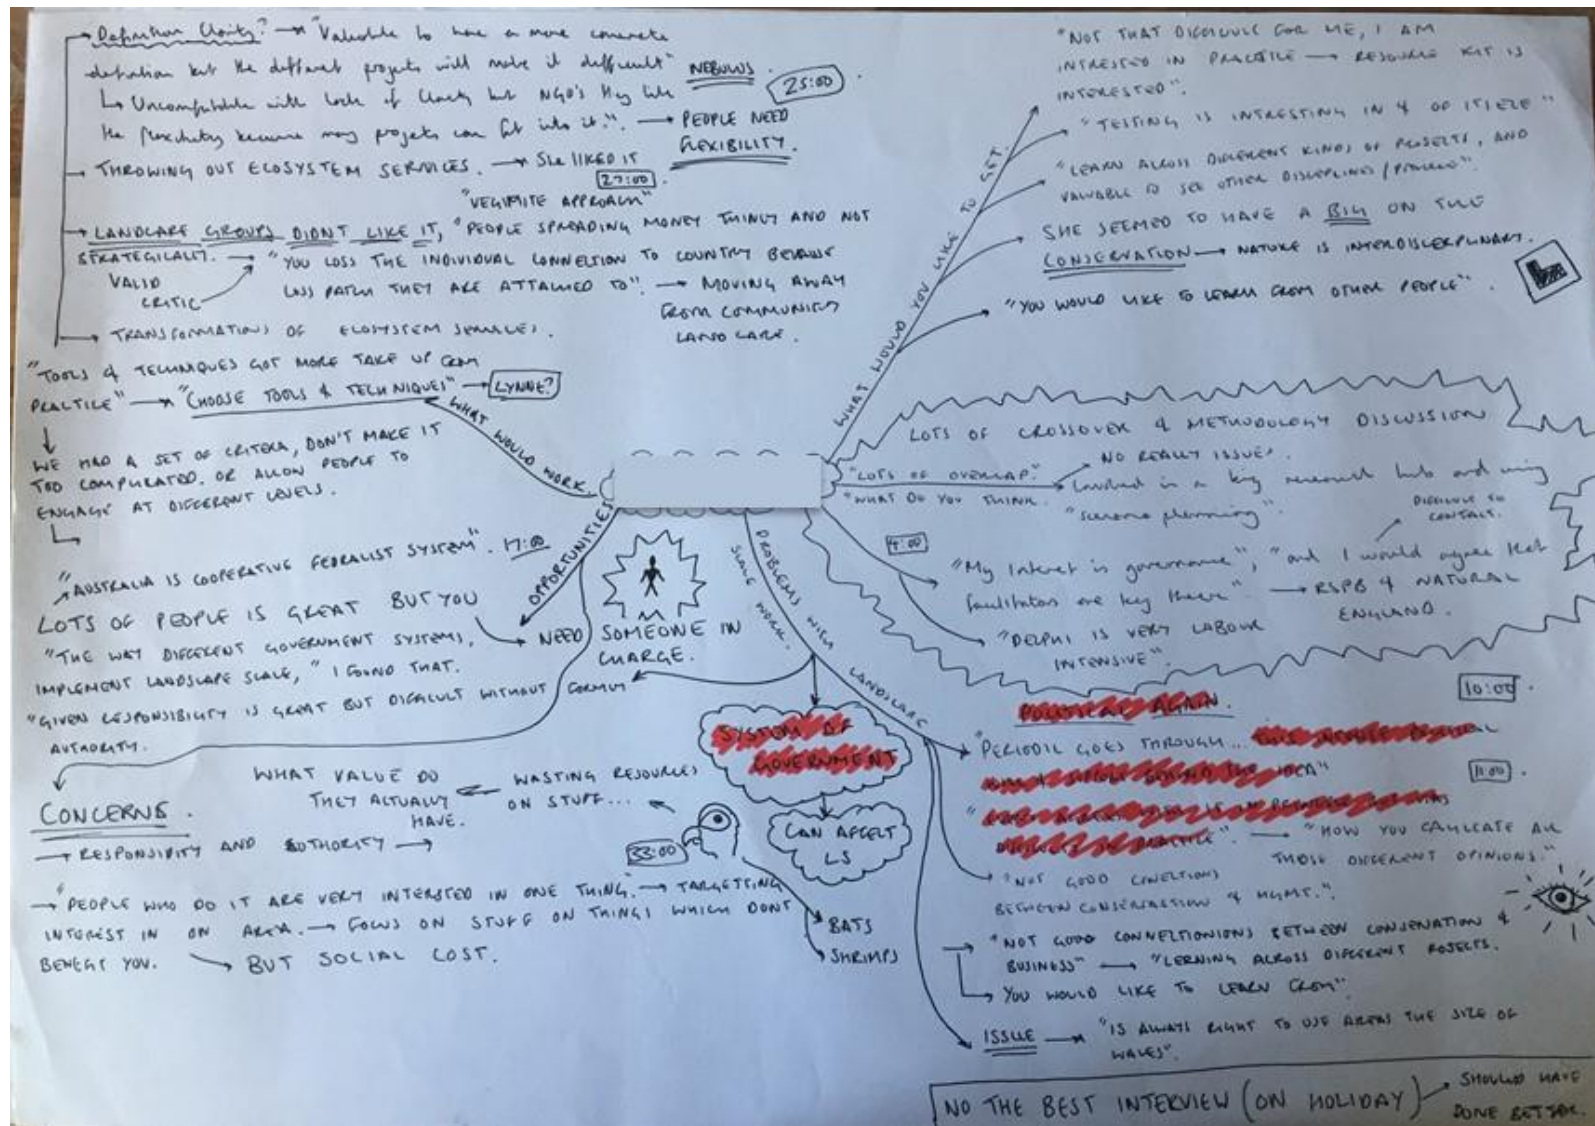 Definition Clarity? → "Valuable to have a more concrete
definition but the different projects will make it difficult" NEBULUS.
25:00
↳ Uncomfortable with lack of clarity but NGO's they like
the flexibility because many projects can fit into it.". → PEOPLE NEED
FLEXIBILITY.
→ THROWING OUT ECOSYSTEM SERVICES. → She LIKED IT
27:00
"VEGIMITE APPROACH"
→ LANDCARE GROUPS DIDNT LIKE IT, "PEOPLE SPREADING MONEY THINLY AND NOT
STRATEGICALLY. → "YOU LOSS THE INDIVIDUAL CONNECTION TO COUNTRY BECAUSE
VALID
CRITIC
LOSS PATCH THEY ARE ATTACHED TO". → MOVING AWAY
FROM COMMUNITY
LAND CARE.
→ TRANSFORMATIONS OF ECOSYSTEM SERVICES.
"TOOLS & TECHNIQUES GOT MORE TAKE UP FROM
PRACTICE" → "CHOOSE TOOLS & TECHNIQUES" → LYNNE?
WHAT WOULD WORK.
WE HAD A SET OF CRITERA, DON'T MAKE IT
TOO COMPLICATED. OR ALLOW PEOPLE TO
ENGAGE AT DIFFERENT LEVELS.
OPPORTUNITIES
"AUSTRALIA IS COOPERATIVE FEDRALIST SYSTEM". 17:00
LOTS OF PEOPLE IS GREAT BUT YOU
→ NEED SOMEONE IN
CHARGE.
"THE WAY DIFFERENT GOVERNMENT SYSTEMS,
IMPLEMENT LANDSCAPE SCALE," I FOUND THAT.
"GIVEN RESPONSIBILITY IS GREAT BUT DIFFICULT WITHOUT FORMUY
AUTHORITY.
CONCERNS.
→ RESPONSIBITY AND AUTHORITY →
WHAT VALUE DO
THEY ACTUALLY
HAVE.
WASTING RESOURCES
ON STUFF...
33:00
→ "PEOPLE WHO DO IT ARE VERY INTERSTED IN ONE THING." → TARGETTING
INTEREST IN ON AREA. → FOCUS ON STUFF ON THINGS WHICH DONT
BENEFIT YOU. → BUT SOCIAL COST.
BATS
SHRIMPS
WHAT WOULD YOU LIKE TO GET.
"NOT THAT DIFFICULT FOR ME, I AM
INTRESTED IN PRACTICE → RESOURCE KIT IS
INTERESTED".
"TESTING IS INTRESTING IN & OF ITSELF"
"LEARN ACROSS DIFFERENT KINDS OF PROJECTS, AND
VALUABLE TO SEE OTHER DISCIPLINES/
SHE SEEMED TO HAVE A BIG ON THE
CONSERVATION → NATURE IS INTERDISCERPLINARY.
"YOU WOULD LIKE TO LEARN FROM OTHER PEOPLE".
LOTS OF CROSSOVER & METHODOLOGY DISCUSSION
"LOTS OF OVERLAP."
"WHAT DO YOU THINK.
→ NO REALLY ISSUES.
→ Involved in a big research hub and using
"scenario planning".
DIFFICULT TO
CONTACT.
4:00
"My Interest is governance", "and I would agree that
facilitators are key there". → RSPB & NATURAL
ENGLAND.
"DELPHI IS VERY LABOUR
INTENSIVE".
PROBLEMS WITH LANDSCAPE
SCALE WORK.
SYSTEM OF
GOVERNMENT
CAN AFFECT
LS
10:00
POLITICAL AGAIN.
"PERIODIC GOES THROUGH...
BEHIND THE IDEA"
11:00
PRACTICE" → "HOW YOU CAULCATE ALL
THOSE DIFFERENT OPINIONS."
"NOT GOOD CONECTIONS
BETWEEN CONSERVASTION & MGMT.".
→ "NOT GOOD CONNECTIONIONS BETWEEN CONSERVATION &
BUSINESS" → "LERNING ACROSS DIFFERENT ROJECTS.
→ YOU WOULD LIKE TO LEARN FROM".
ISSUE → "IS ALWAYS RIGHT TO USE AREAS THE SIZE OF
WALES".
NO THE BEST INTERVIEW (ON HOLIDAY) → SHOULD HAVE
DONE BETTER.